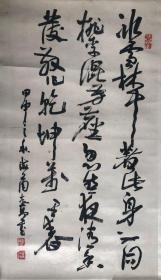 冰雪林中著此身不同
桃李混芳尘忽然一夜清香
发散作乾坤万里春
甲申之秋